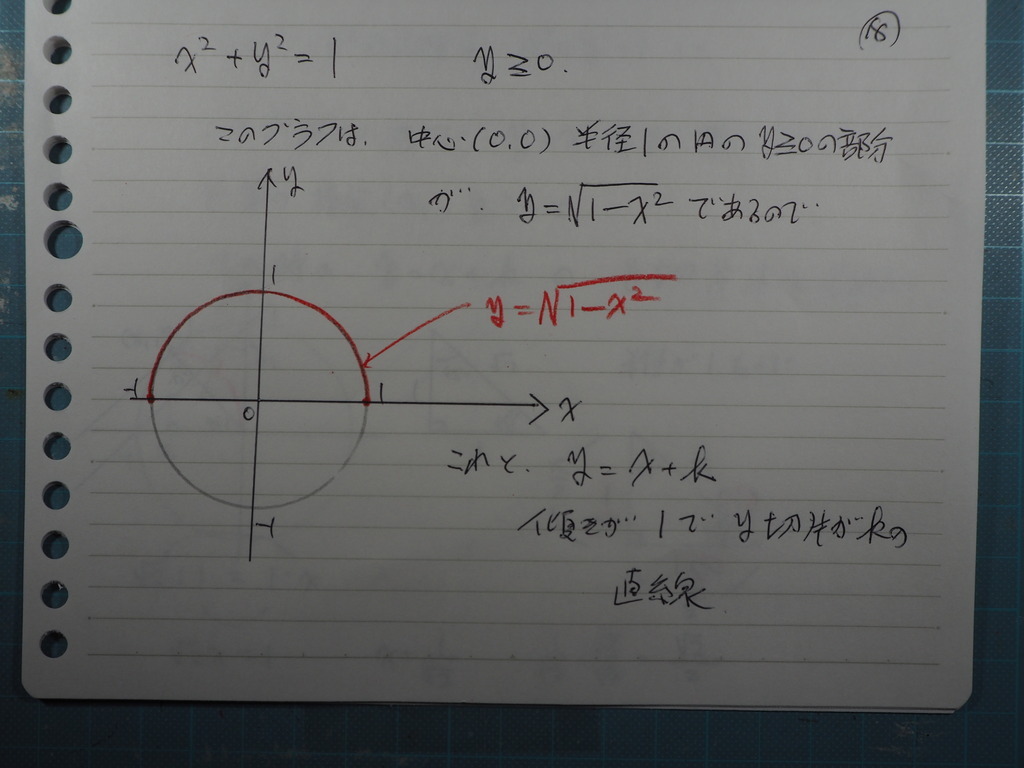 (18)
x² + y² = 1 y ≧ 0.
このグラフは. 中心(0.0) 半径1の円の y≧0の部分
が. y = √1-x² であるので
y
1
y = √1-x²
-1 1
0 x
これと. y = x + k
傾きが 1で y切片がkの
-1
直線